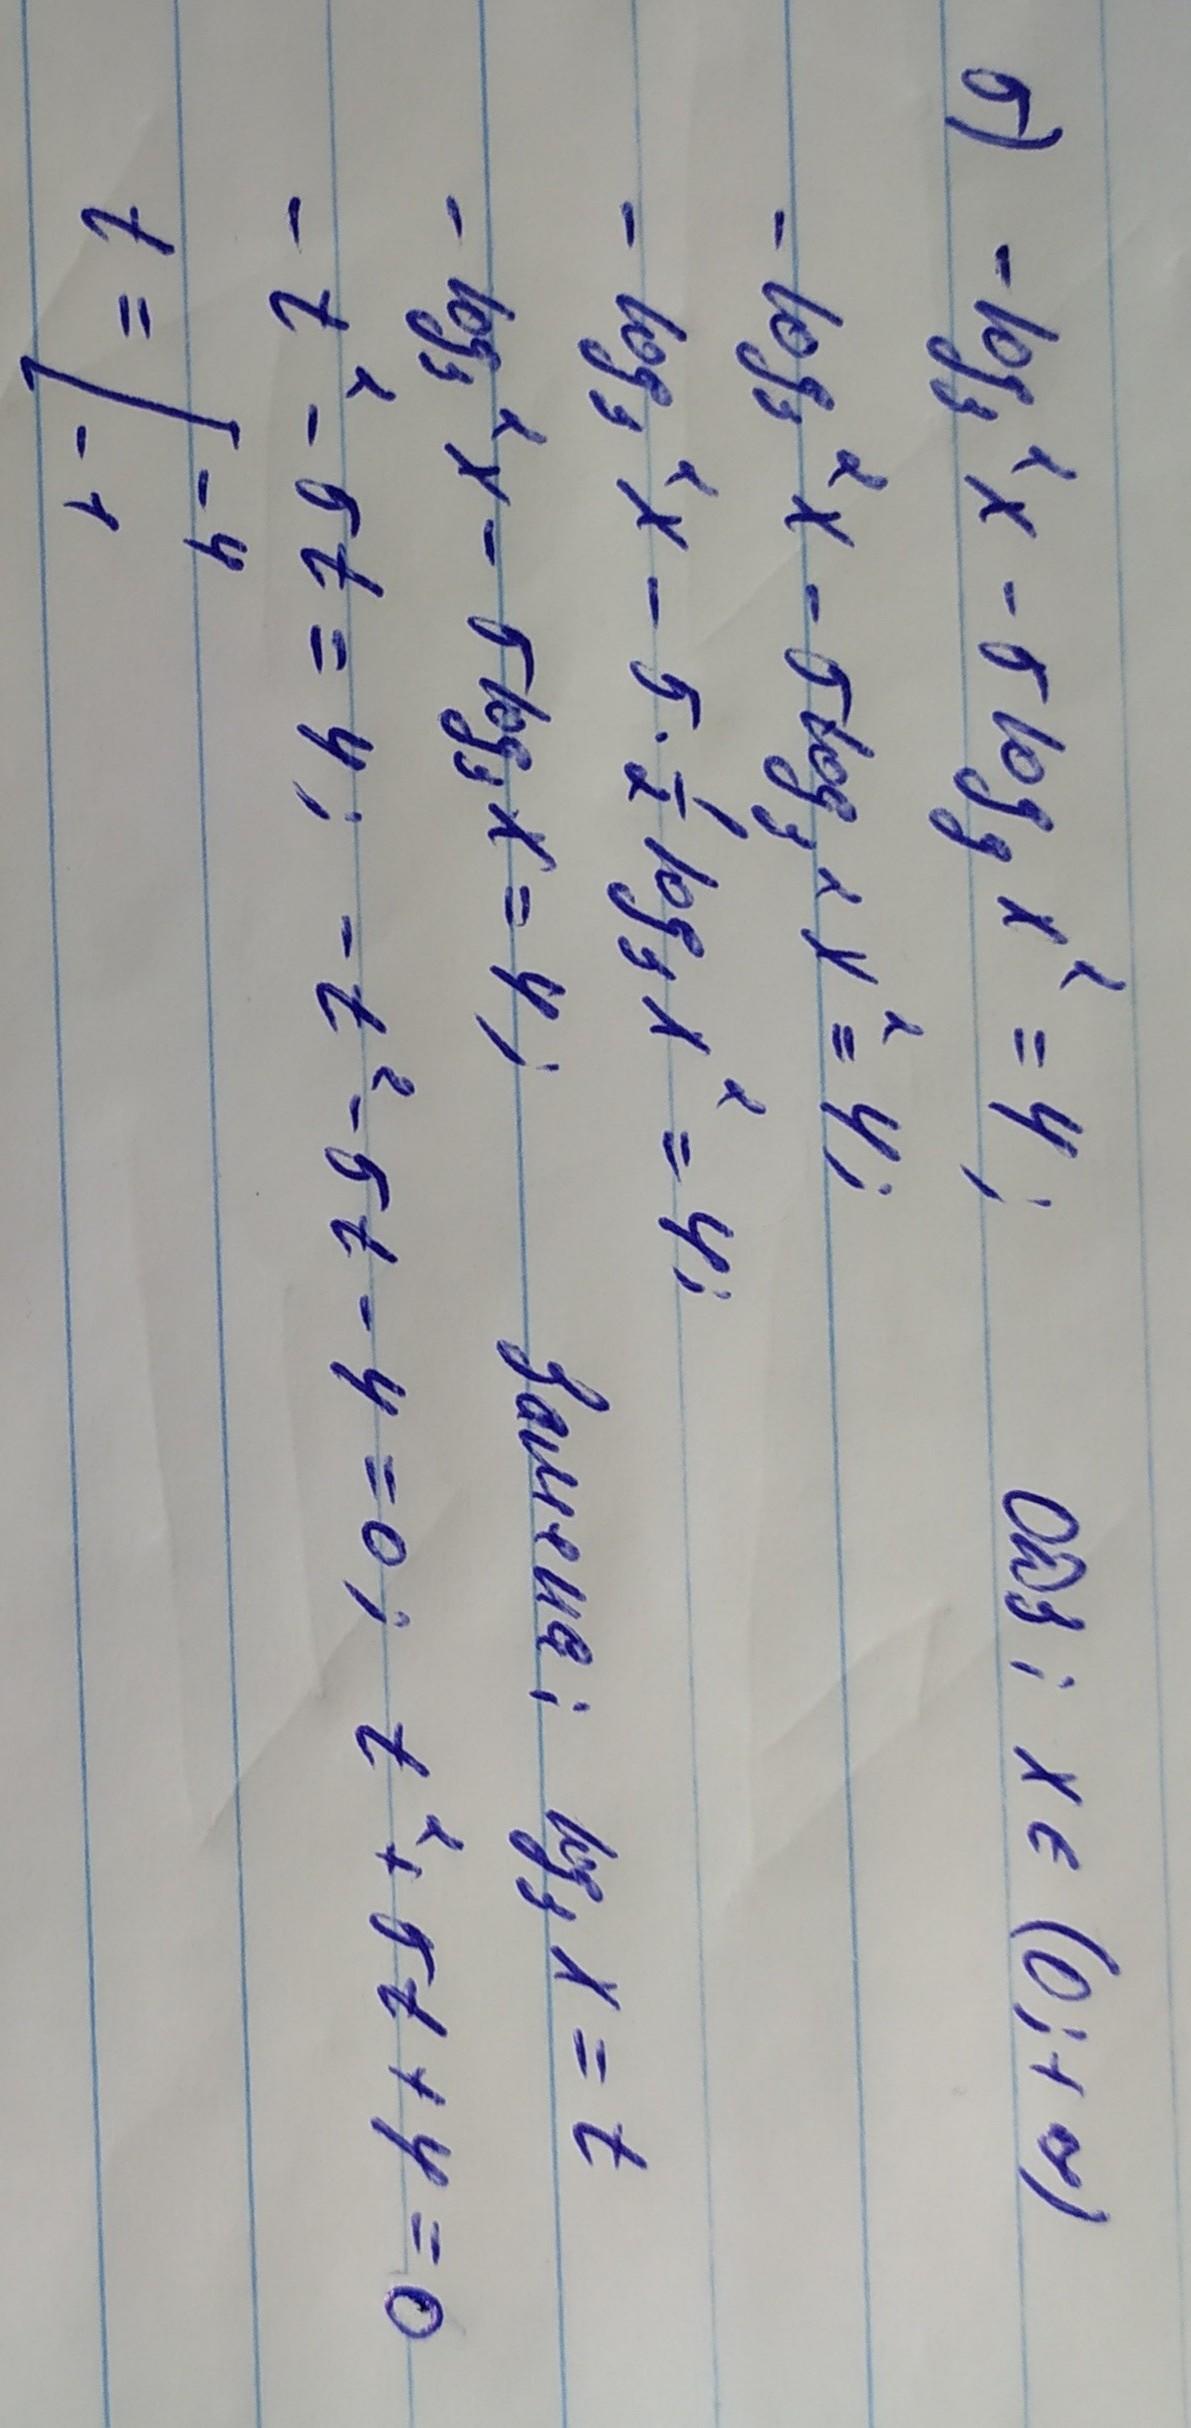 5) -log₃²x - 5log₉x² = 4; ОДЗ: x ∈ (0; +∞)
-log₃²x - 5log₃²x² = 4;
-log₃²x - 5·½log₃x² = 4;
-log₃²x - 5log₃x = 4; Замена: log₃x = t
-t² - 5t = 4; -t² - 5t - 4 = 0; t² + 5t + 4 = 0
t = [ -4
-1